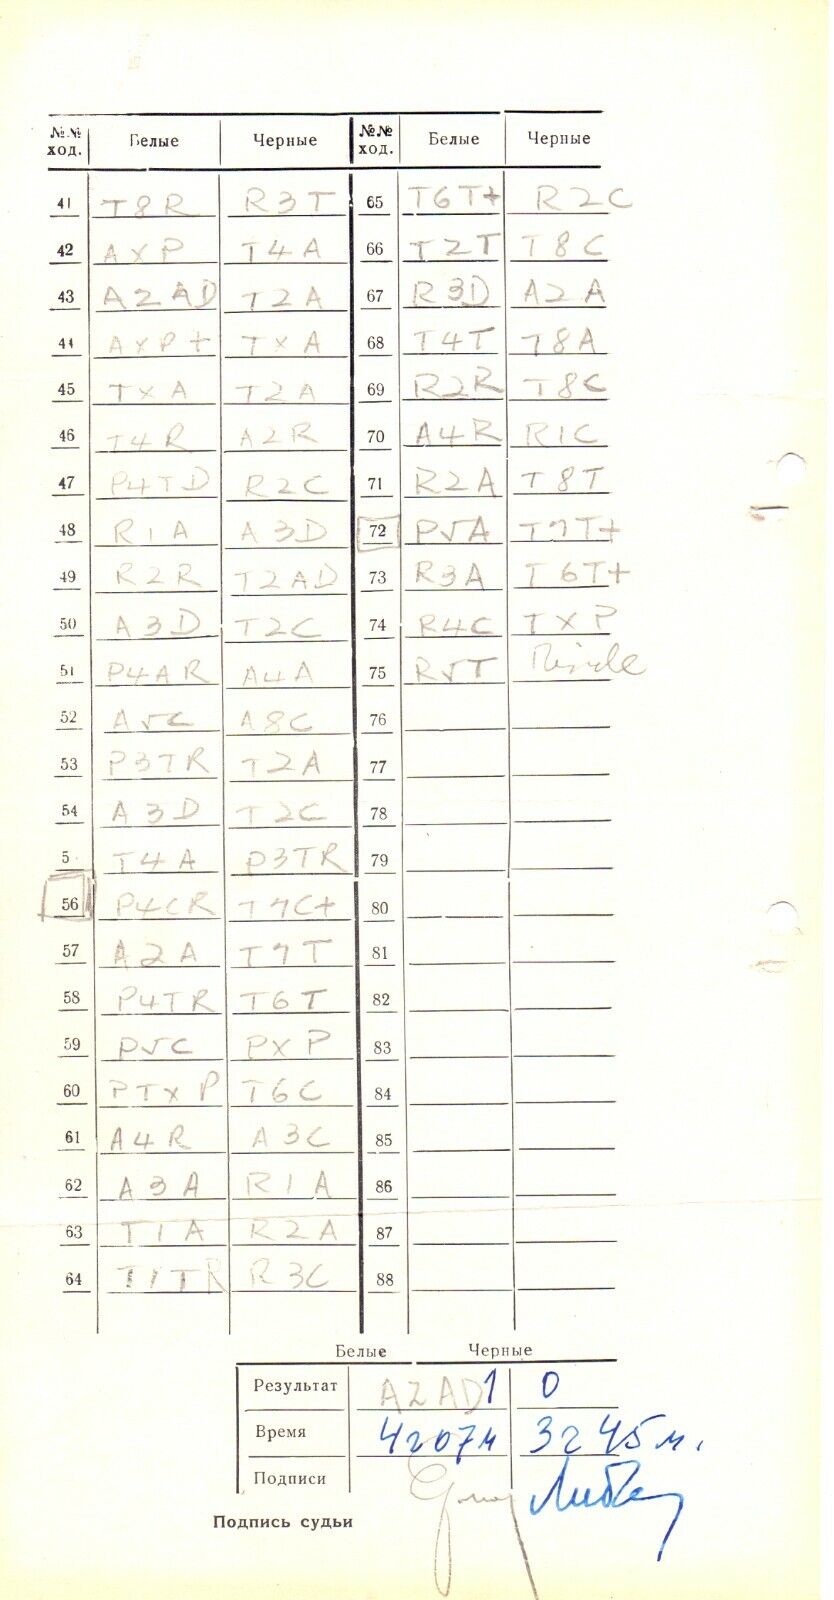 №№ ход. Белые Черные №№ ход. Белые Черные
41 T8R R3T 65 T6T+ R2C
42 AXP T4A 66 T2T T8C
43 A2AD T2A 67 R3D A2A
44 AXP+ TXA 68 T4T T8A
45 TXA T2A 69 R2R T8C
46 T4R A2R 70 A4R R1C
47 P4TD R2C 71 R2A T8T
48 R1A A3D 72 P5A T7T+
49 R2R T2AD 73 R3A T6T+
50 A3D T2C 74 R4C TXP
51 P4AR A4A 75 R5T Rinde
52 A5C A8C 76
53 P3TR T2A 77
54 A3D T2C 78
5 T4A P3TR 79
56 P4CR T7C+ 80
57 A2A T7T 81
58 P4TR T6T 82
59 P5C PXP 83
60 PTXP T6C 84
61 A4R A3C 85
62 A3A R1A 86
63 T1A R2A 87
64 T1TR R3C 88
Белые Черные
Результат A2AD 1 0
Время 4г07м 3г45м.
Подписи
Подпись судьи